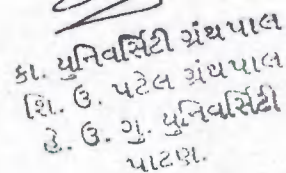 કા. યુનિવર્સિટી ગ્રંથપાલ
શિ. ઉ. પટેલ ગ્રંથપાલ
હે. ઉ. ગુ. યુનિવર્સિટી
પાટણ.